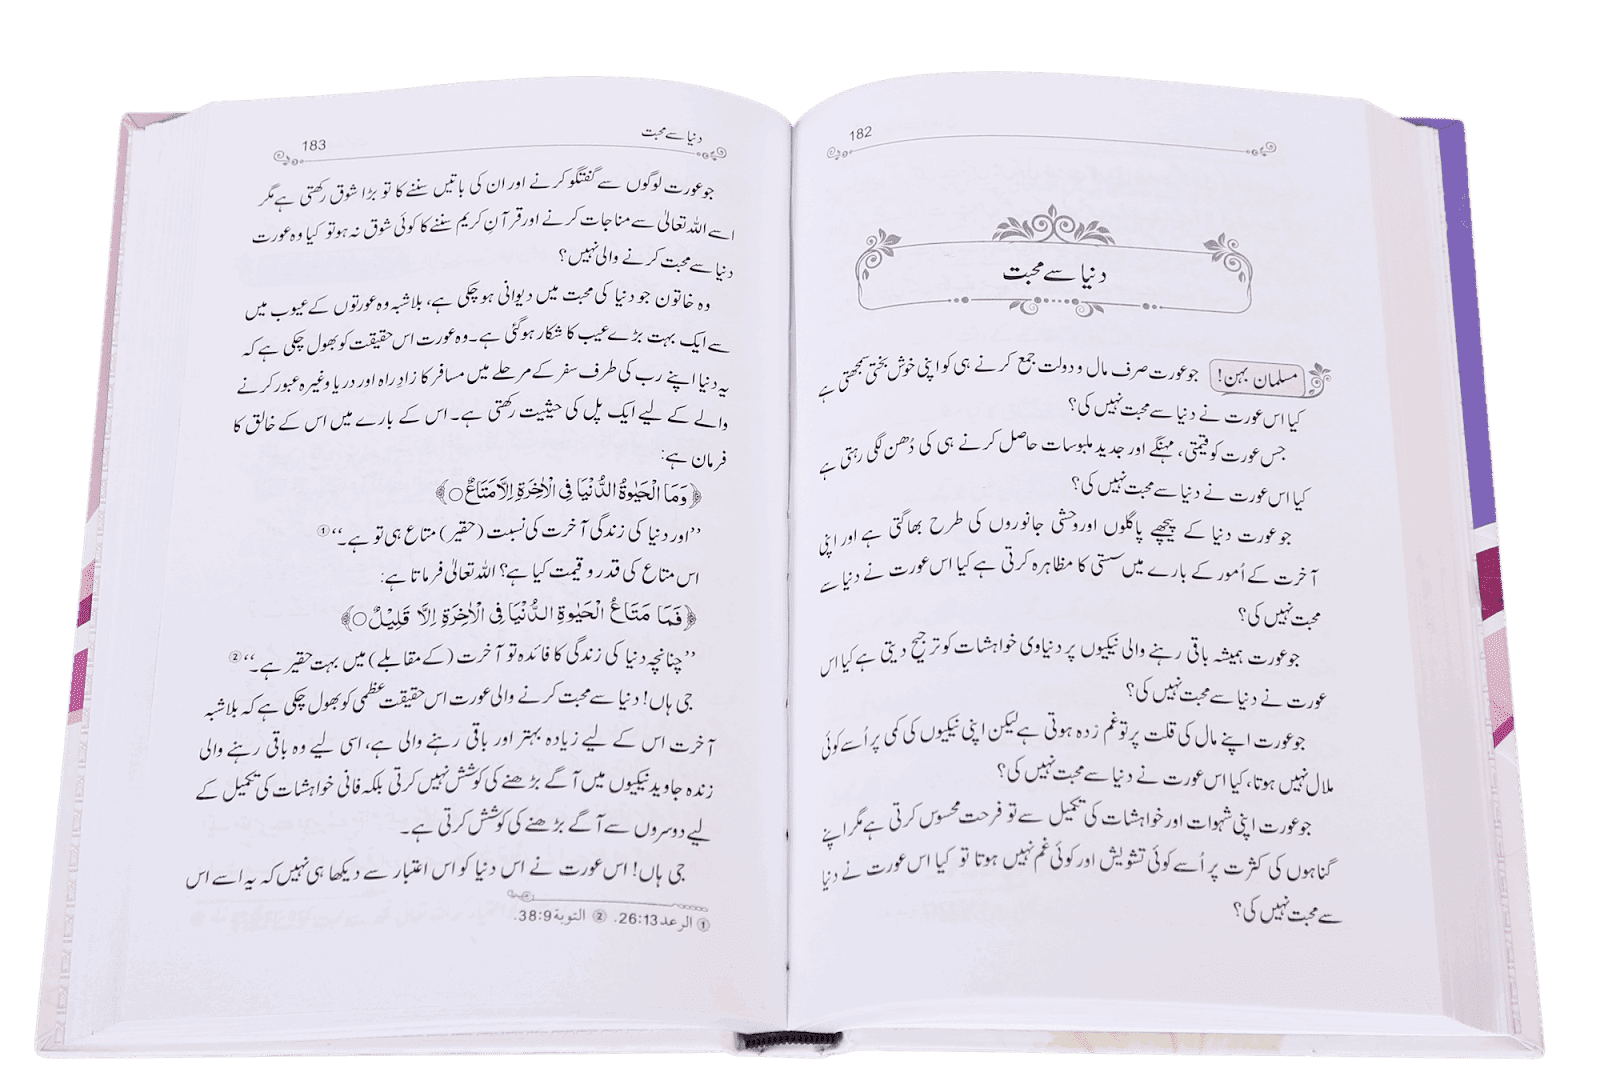 182
دنیا سے محبت
مسلمان بہن! جو عورت صرف مال و دولت جمع کرنے ہی کو اپنی خوش بختی سمجھتی ہے
کیا اس عورت نے دنیا سے محبت نہیں کی؟
جس عورت کو قیمتی، مہنگے اور جدید ملبوسات حاصل کرنے ہی کی دُھن لگی رہتی ہے
کیا اس عورت نے دنیا سے محبت نہیں کی؟
جو عورت دنیا کے پیچھے پاگلوں اور وحشی جانوروں کی طرح بھاگتی ہے اور اپنی
آخرت کے اُمور کے بارے میں سستی کا مظاہرہ کرتی ہے کیا اس عورت نے دنیا سے
محبت نہیں کی؟
جو عورت ہمیشہ باقی رہنے والی نیکیوں پر دنیاوی خواہشات کو ترجیح دیتی ہے کیا اس
عورت نے دنیا سے محبت نہیں کی؟
جو عورت اپنے مال کی قلت پر تو غم زدہ ہوتی ہے لیکن اپنی نیکیوں کی کمی پر اُسے کوئی
ملال نہیں ہوتا، کیا اس عورت نے دنیا سے محبت نہیں کی؟
جو عورت اپنی شہوات اور خواہشات کی تکمیل سے تو فرحت محسوس کرتی ہے مگر اپنے
گناہوں کی کثرت پر اُسے کوئی تشویش اور کوئی غم نہیں ہوتا تو کیا اس عورت نے دنیا
سے محبت نہیں کی؟
دنیا سے محبت 183
جو عورت لوگوں سے گفتگو کرنے اور ان کی باتیں سننے کا تو بڑا شوق رکھتی ہے مگر
اسے اللہ تعالیٰ سے مناجات کرنے اور قرآنِ کریم سننے کا کوئی شوق نہ ہو تو کیا وہ عورت
دنیا سے محبت کرنے والی نہیں؟
وہ خاتون جو دنیا کی محبت میں دیوانی ہو چکی ہے، بلاشبہ وہ عورتوں کے عیوب میں
سے ایک بہت بڑے عیب کا شکار ہو گئی ہے۔ وہ عورت اس حقیقت کو بھول چکی ہے کہ
یہ دنیا اپنے رب کی طرف سفر کے مرحلے میں مسافر کا زادِ راہ اور دریا وغیرہ عبور کرنے
والے کے لیے ایک پل کی حیثیت رکھتی ہے۔ اس کے بارے میں اس کے خالق کا
فرمان ہے:
﴿وَمَا الْحَيٰوةُ الدُّنْيَا فِى الْاٰخِرَةِ اِلَّا مَتَاعٌ○﴾
’’اور دنیا کی زندگی آخرت کی نسبت (حقیر) متاع ہی تو ہے۔‘‘①
اس متاع کی قدر و قیمت کیا ہے؟ اللہ تعالیٰ فرماتا ہے:
﴿فَمَا مَتَاعُ الْحَيٰوةِ الدُّنْيَا فِى الْاٰخِرَةِ اِلَّا قَلِيْلٌ○﴾
’’چنانچہ دنیا کی زندگی کا فائدہ تو آخرت (کے مقابلے) میں بہت حقیر ہے۔‘‘②
جی ہاں! دنیا سے محبت کرنے والی عورت اس حقیقت عظمی کو بھول چکی ہے کہ بلاشبہ
آخرت اس کے لیے زیادہ بہتر اور باقی رہنے والی ہے، اسی لیے وہ باقی رہنے والی
زندہ جاوید نیکیوں میں آگے بڑھنے کی کوشش نہیں کرتی بلکہ فانی خواہشات کی تکمیل کے
لیے دوسروں سے آگے بڑھنے کی کوشش کرتی ہے۔
جی ہاں! اس عورت نے اس دنیا کو اس اعتبار سے دیکھا ہی نہیں کہ یہ اسے اس
① الرعد 26:13. ② التوبة 38:9.